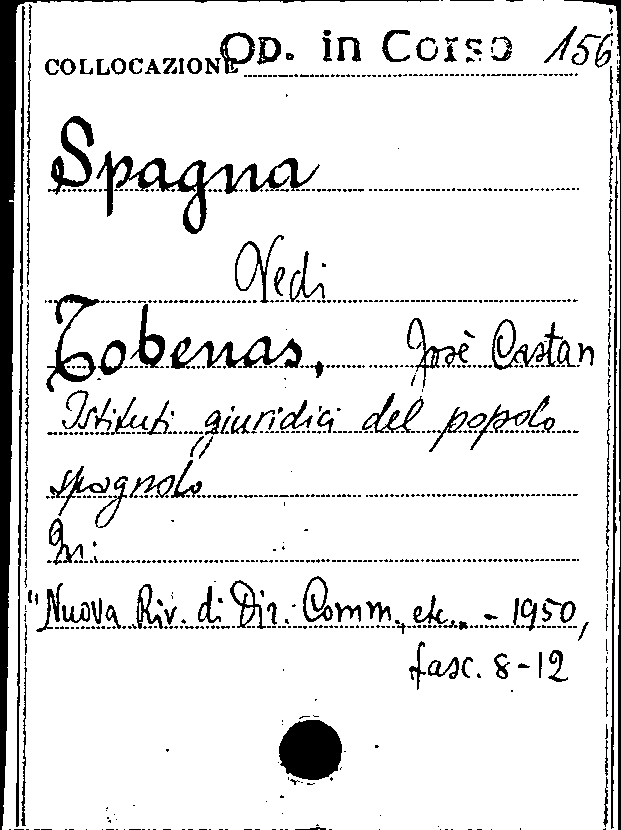 COLLOCAZIONE Op. in Corso 156
Spagna
Vedi
Tobenas, Josè Castan
Istituti giuridici del popolo
spagnolo
In:
"Nuova Riv. di Dir. Comm., etc.. - 1950,
fasc. 8-12